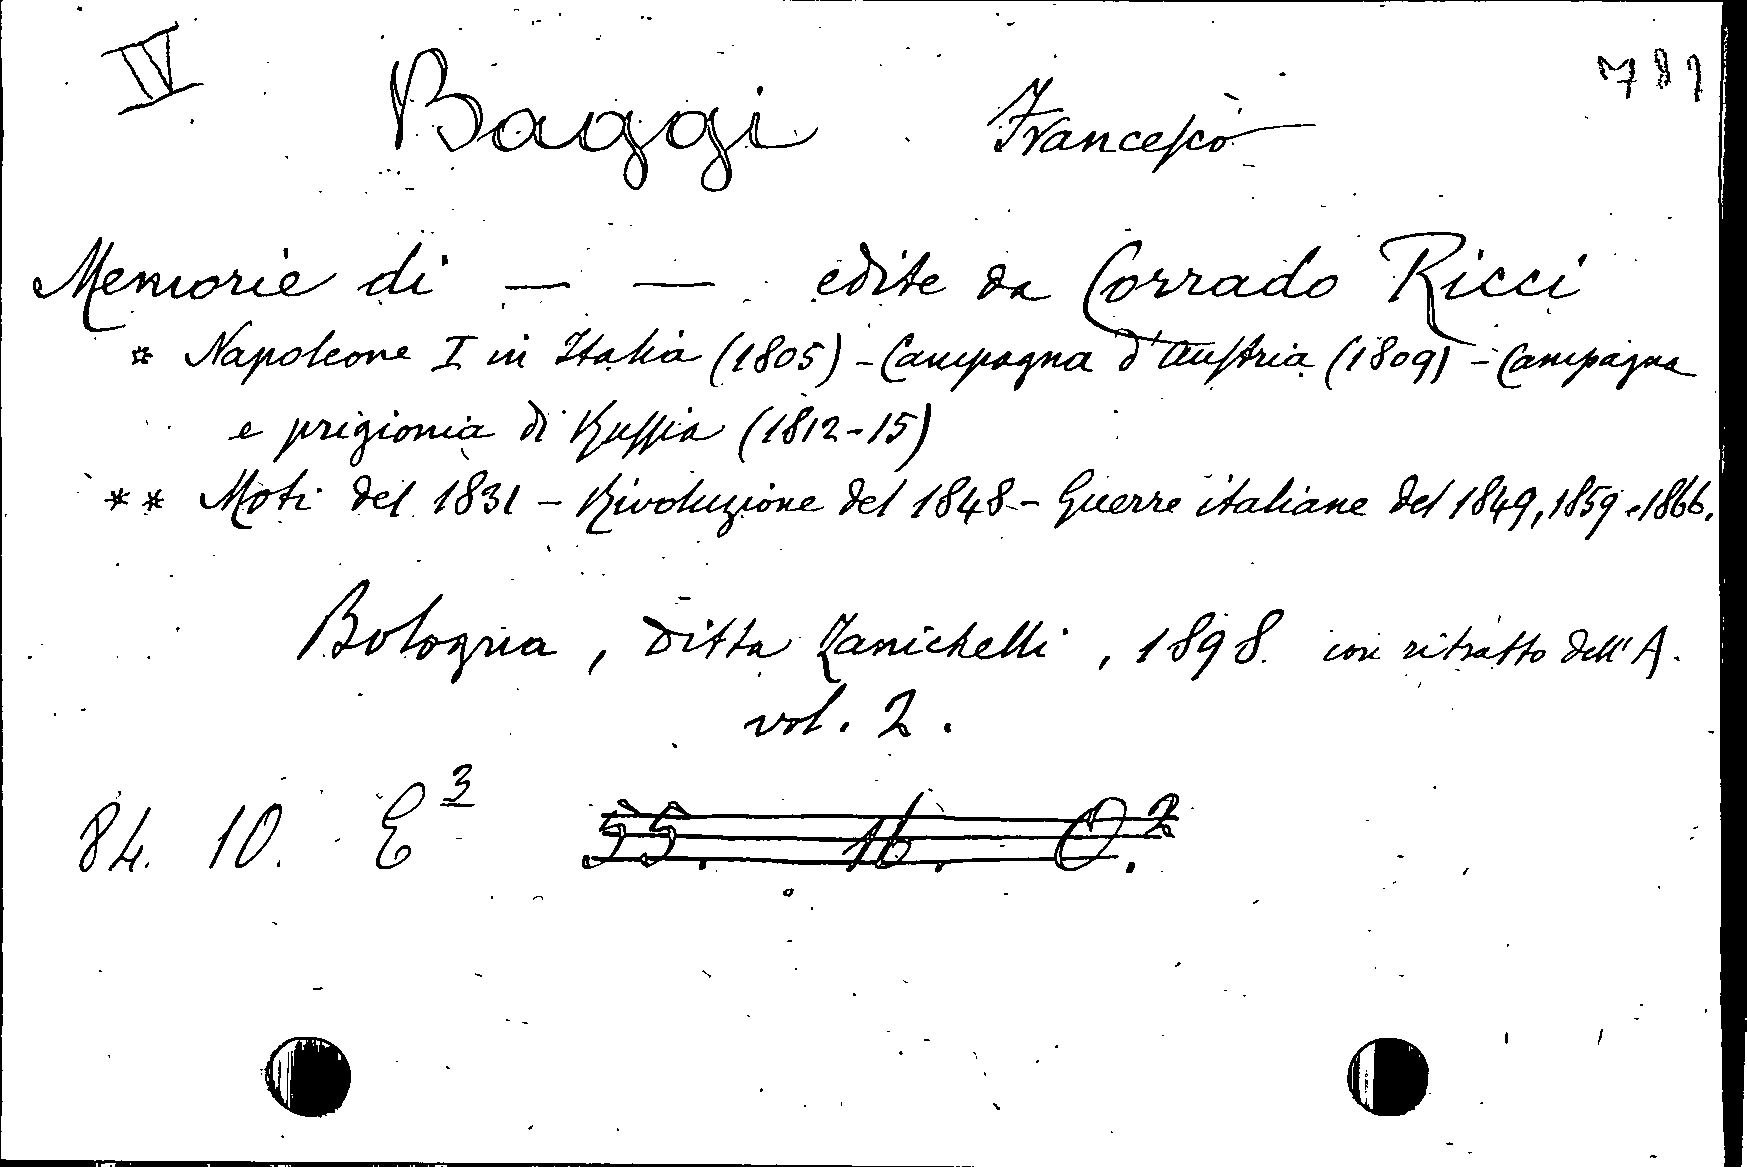 IV Baggi Francesco 781
Memorie di — — edite da Corrado Ricci
* Napoleone I in Italia (1805) - Campagna d'Austria (1809) - Campagna
e prigionia di Russia (1812-15)
** Moti del 1831 - Rivoluzione del 1848 - Guerre italiane del 1849, 1859 e 1866.
Bologna, ditta Zanichelli, 1898. con ritratto dell'A.
vol. 2.
84. 10. E³ 55. 16. O.²